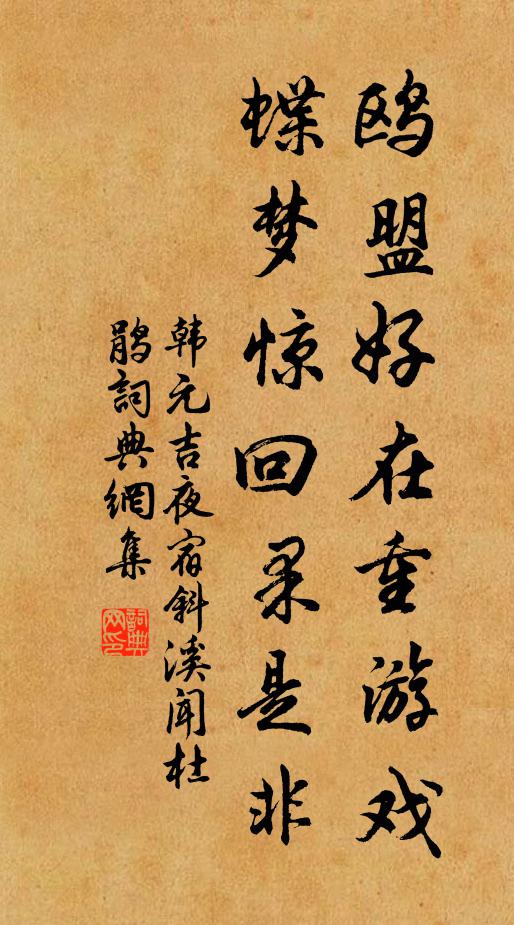 鸥盟好在重游戏
蝶梦惊回果是非
韩元吉夜宿斜溪闻杜
鹃詞典網集
詞典
网印